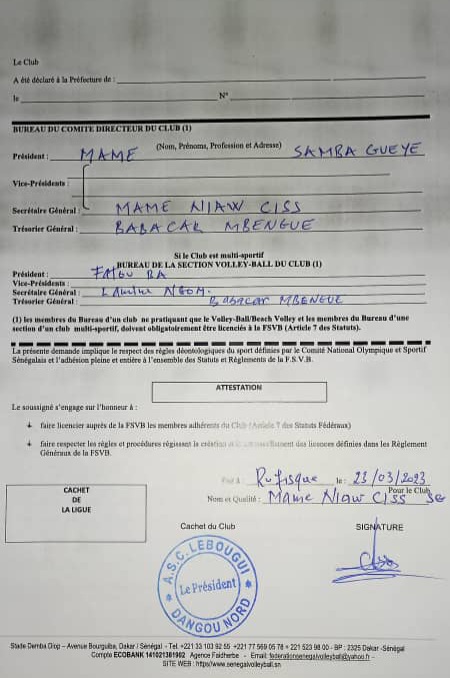 Le Club
A été déclaré à la Préfecture de :
le N°
BUREAU DU COMITE DIRECTEUR DU CLUB (1)
(Nom, Prénoms, Profession et Adresse)
Président : MAME SAMBA GUEYE
Vice-Présidents :
Secrétaire Général : MAME NIAW CISS
Trésorier Général : BABACAR MBENGUE
Si le Club est multi-sportif
BUREAU DE LA SECTION VOLLEY-BALL DU CLUB (1)
Président : FATOU BA
Vice-Présidents :
Secrétaire Général : Lamine NGOM
Trésorier Général : Babacar MBENGUE
(1) les membres du Bureau d'un club ne pratiquant que le Volley-Ball/Beach Volley et les membres du Bureau d'une
section d'un club multi-sportif, doivent obligatoirement être licenciés à la FSVB (Article 7 des Statuts).
La présente demande implique le respect des règles déontologiques du sport définies par le Comité National Olympique et Sportif
Sénégalais et l'adhésion pleine et entière à l'ensemble des Statuts et Règlements de la F.S.V.B.
ATTESTATION
Le soussigné s'engage sur l'honneur à :
faire licencier auprès de la FSVB les membres adhérents du Club (Article 7 des Statuts Fédéraux)
faire respecter les règles et procédures régissant la création et le renouvellement des licences définies dans les Règlement
Généraux de la FSVB.
Fait à : Rufisque le : 23/03/2023
Pour le Club
Nom et Qualité : Mame Niaw CISS SG
CACHET
DE
LA LIGUE
Cachet du Club
SIGNATURE
A.S.C. LEBOUGUI
Le Président
DANGOU NORD
Stade Demba Diop – Avenue Bourguiba, Dakar / Sénégal - Tel. +221 33 103 92 55 +221 77 569 05 78 + 221 523 98 00 - BP : 2325 Dakar -Sénégal
Compte ECOBANK 141021361902 Agence Faidherbe - Email: federationsenegalvolleyball@yahoo.fr -
SITE WEB : https/www.senegalvolleyball.sn